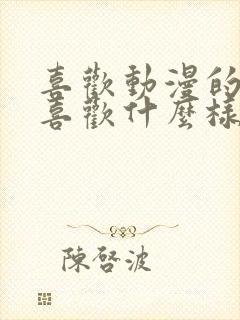 喜歡動漫的
喜歡什麼樣
陳啓波